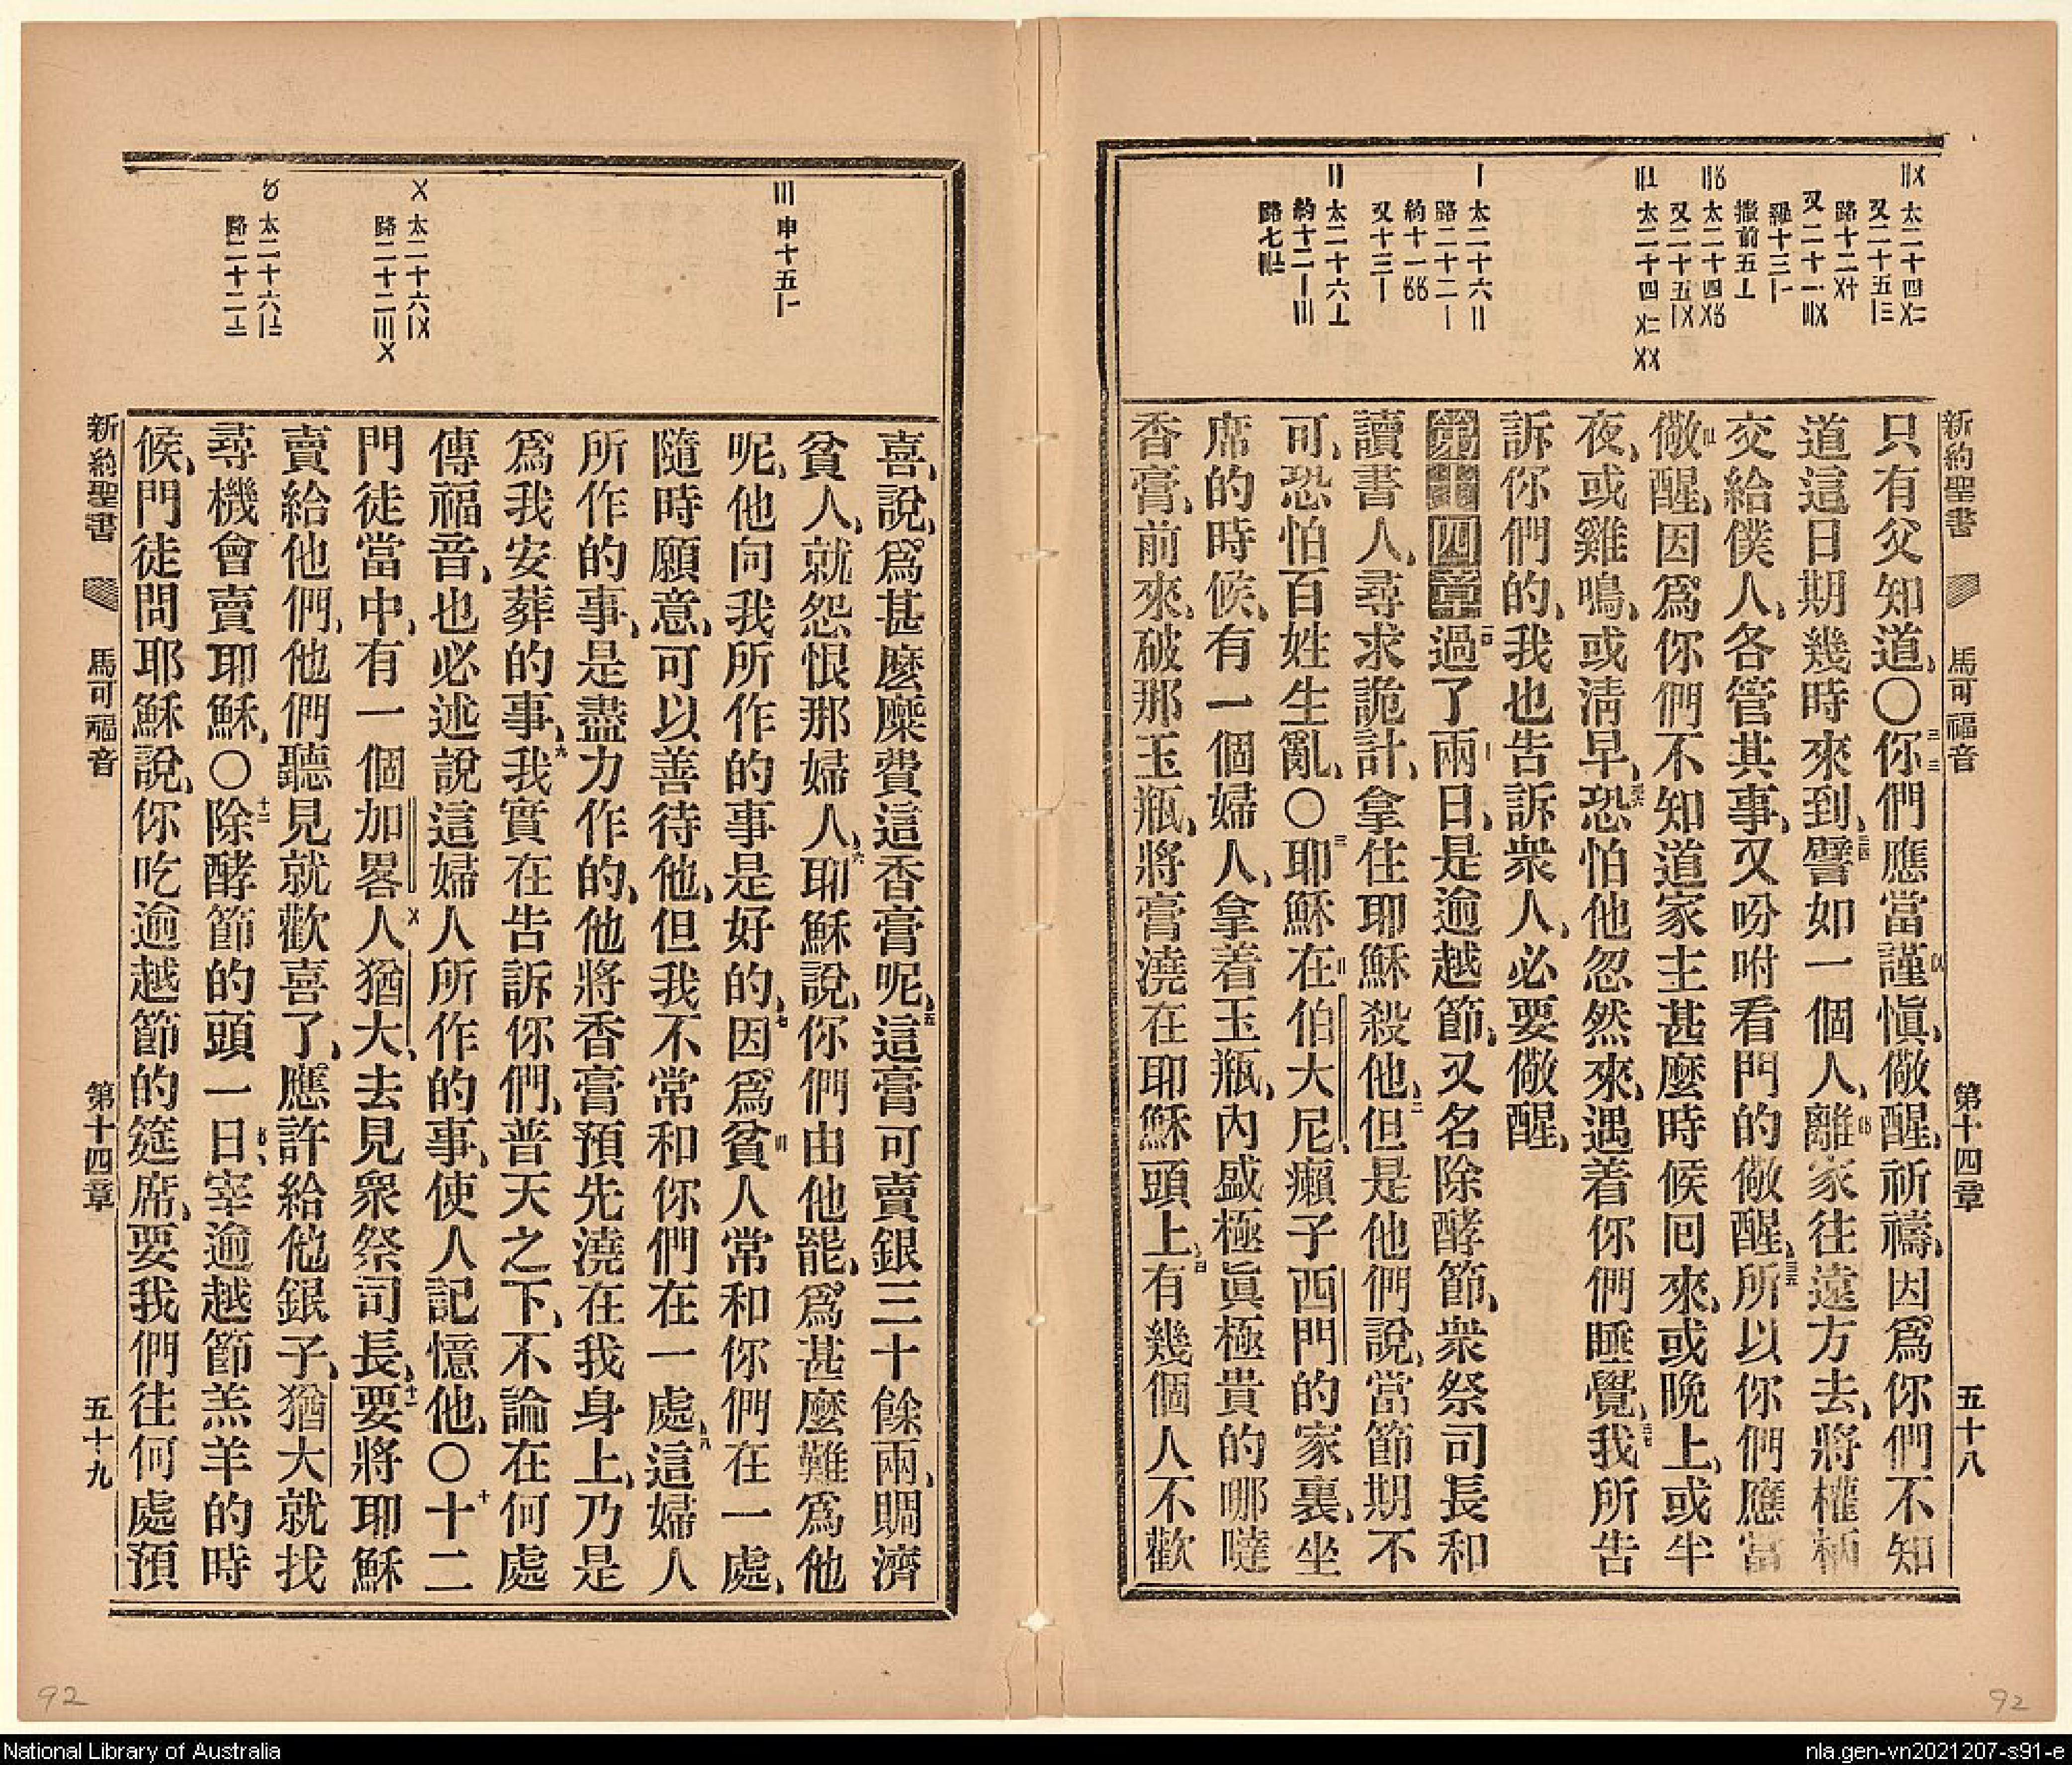 新約聖書 馬可福音 第十四章 五十八
只有父知道、〇你們應當謹愼、儆醒、祈禱、因爲你們不知
道這日期幾時來到、譬如一個人、離家往遠方去、將權柄
交給僕人、各管其事、又吩咐看門的儆醒、所以你們應當
儆醒、因爲你們不知道家主甚麽時候回來、或晚上、或半
夜、或雞鳴、或淸早、恐怕他忽然來、遇着你們睡覺、我所告
訴你們的、我也告訴衆人、必要儆醒、
第十四章 過了兩日、是逾越節、又名除酵節、衆祭司長和
讀書人、尋求詭計、拿住耶穌殺他、但是他們說、當節期不
可、恐怕百姓生亂、〇耶穌在伯大尼、癩子西門的家裏、坐
席的時候、有一個婦人、拿着玉瓶、內盛極眞極貴的哪噠
香膏、前來、破那玉瓶、將膏澆在耶穌頭上、有幾個人不歡
喜、說、爲甚麽糜費這香膏呢、這膏可賣銀三十餘兩、賙濟
貧人、就怨恨那婦人、耶穌說、你們由他罷、爲甚麽難爲他
呢、他向我所作的事是好的、因爲貧人常和你們在一處、
隨時願意、可以善待他、但我不常和你們在一處、這婦人
所作的事、是盡力作的、他將香膏預先澆在我身上、乃是
爲我安葬的事、我實在告訴你們、普天之下、不論在何處
傳福音、也必述說這婦人所作的事、使人記憶他、〇十二
門徒當中、有一個加畧人猶大、去見衆祭司長、要將耶穌
賣給他們、他們聽見就歡喜了、應許給他銀子、猶大就找
尋機會賣耶穌、〇除酵節的頭一日、宰逾越節羔羊的時
候、門徒問耶穌說、你吃逾越節的筵席、要我們往何處預
新約聖書 馬可福音 第十四章 五十九
92
92
National Library of Australia
nla.gen-vn2021207-s91-e